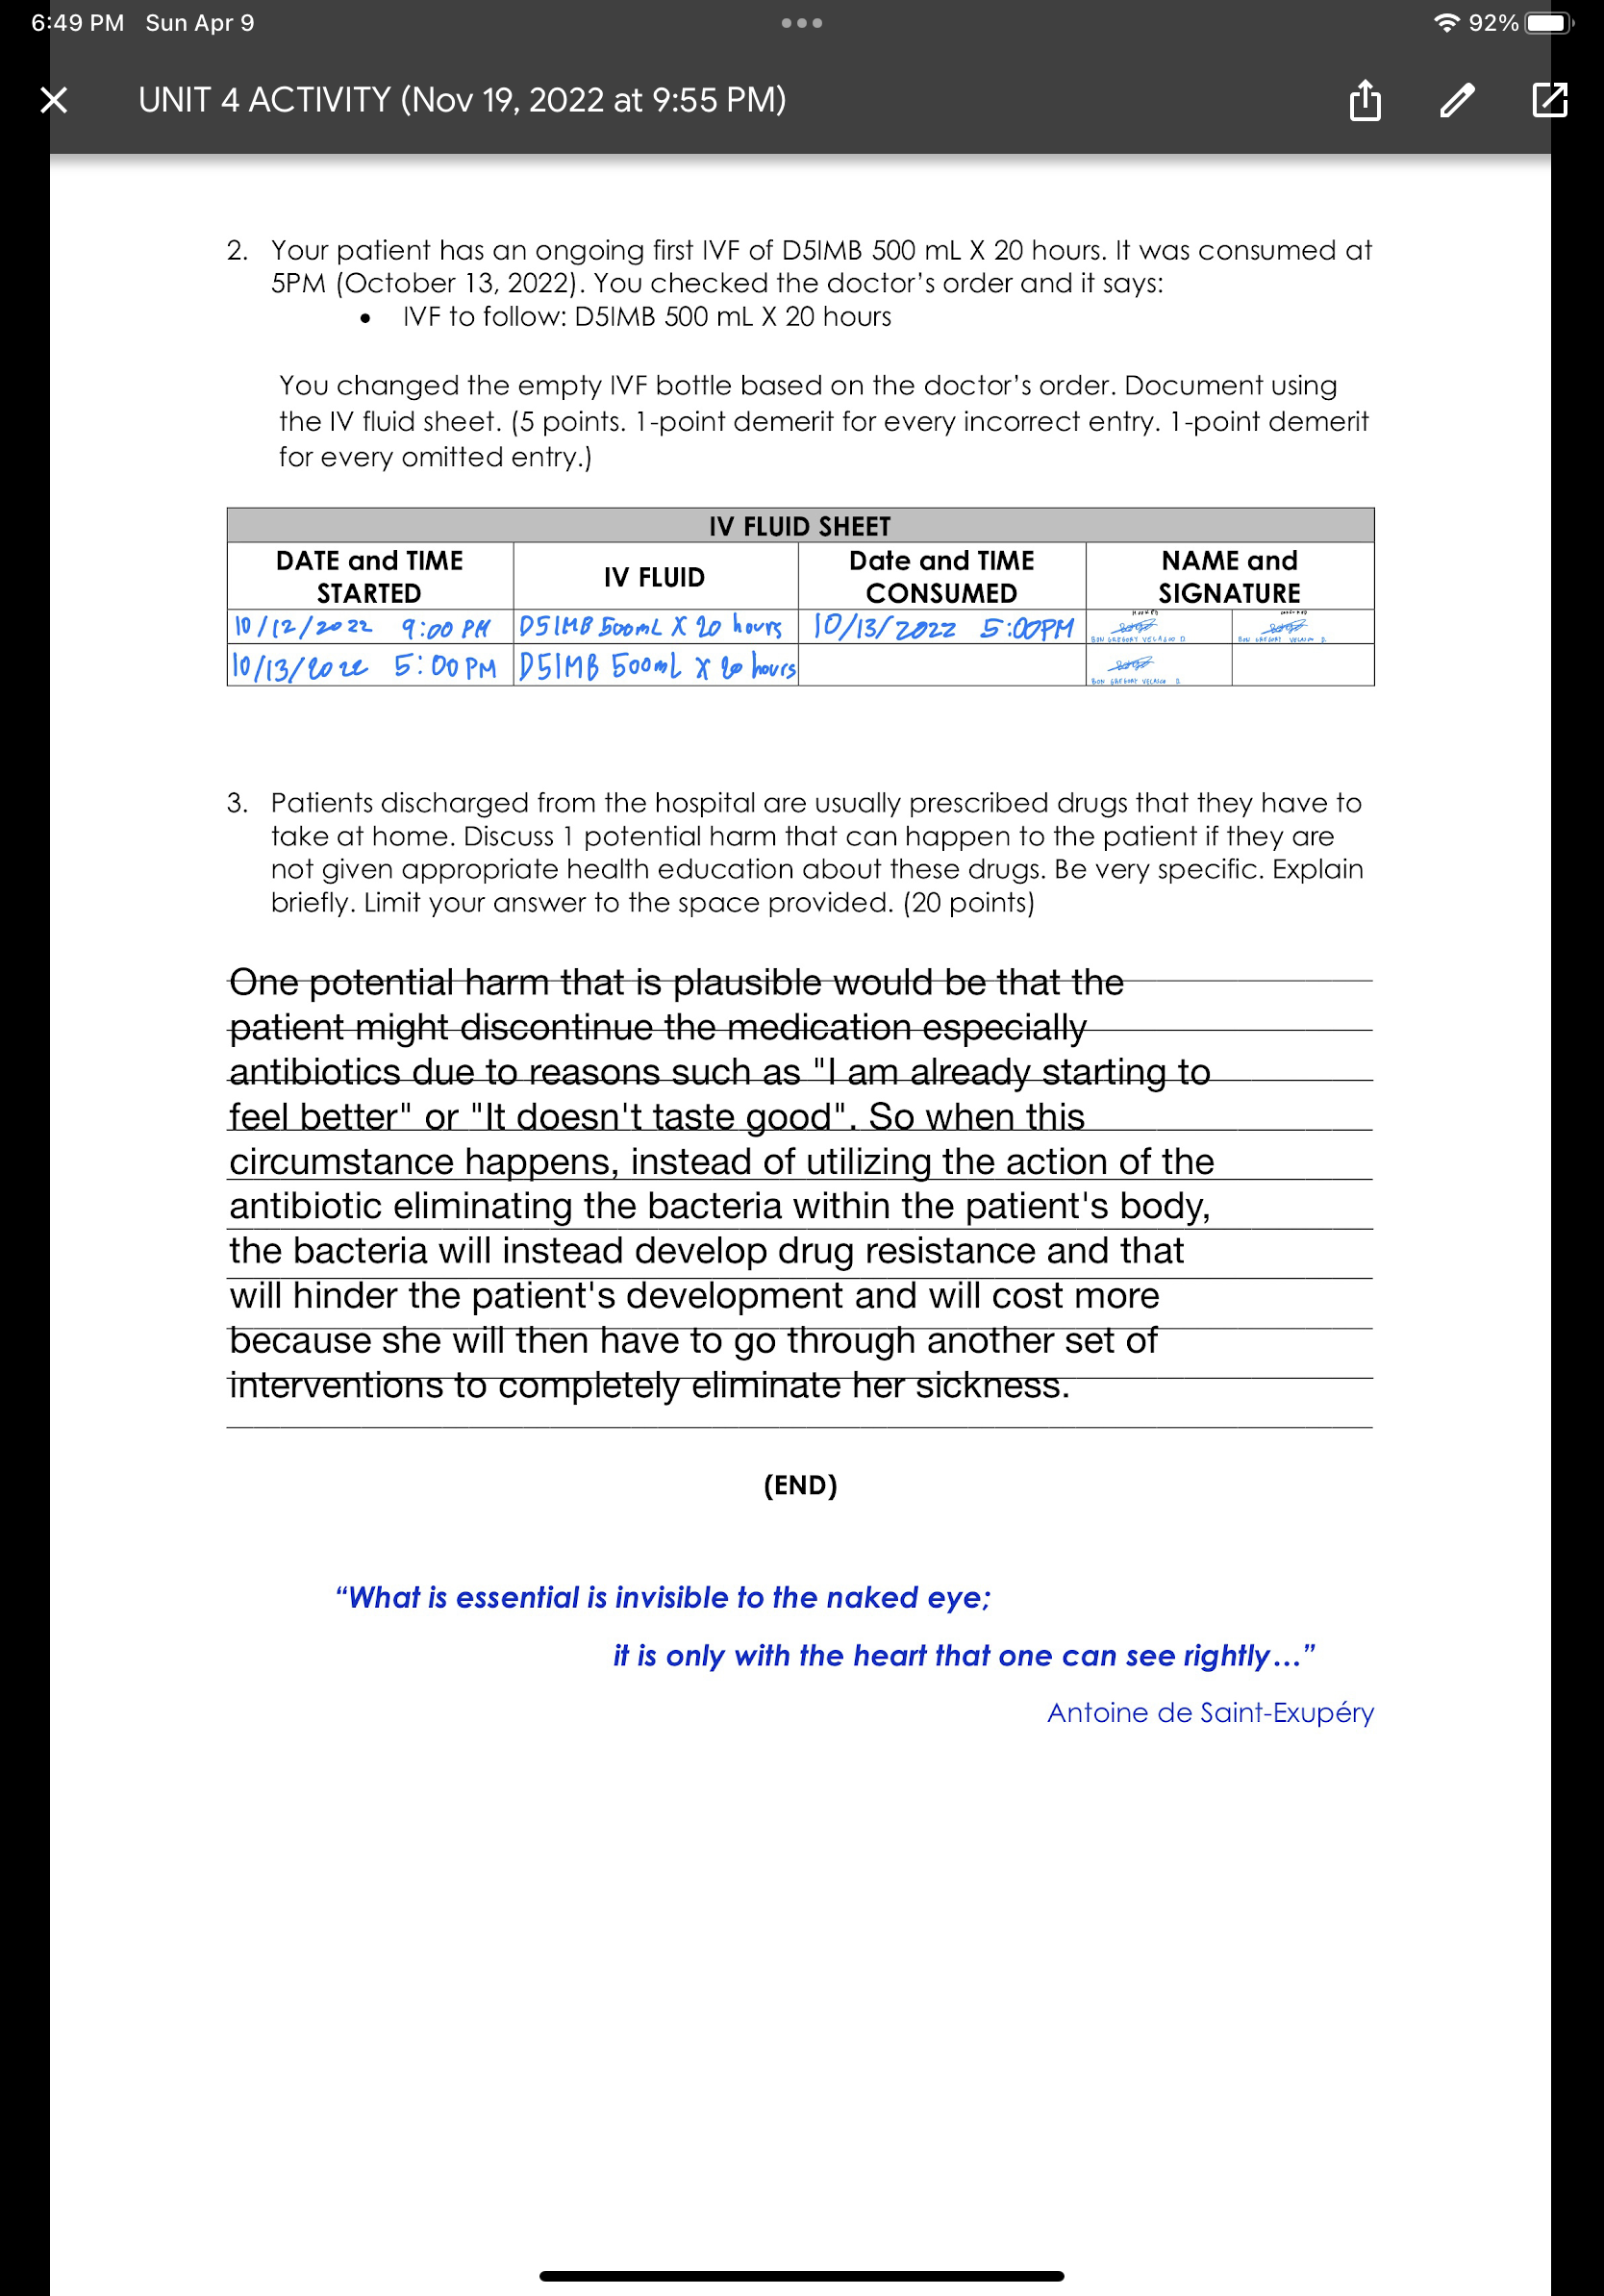 6:49 PM Sun Apr 9
92%
UNIT 4 ACTIVITY (Nov 19, 2022 at 9:55 PM)
2. Your patient has an ongoing first IVF of D5IMB 500 mL X 20 hours. It was consumed at
5PM (October 13, 2022). You checked the doctor’s order and it says:
• IVF to follow: D5IMB 500 mL X 20 hours
You changed the empty IVF bottle based on the doctor’s order. Document using
the IV fluid sheet. (5 points. 1-point demerit for every incorrect entry. 1-point demerit
for every omitted entry.)
IV FLUID SHEET
DATE and TIME STARTED
IV FLUID
Date and TIME CONSUMED
NAME and SIGNATURE
10/12/2022 9:00 PM D5IMB 500mL X 20 hours 10/13/2022 5:00PM
10/13/2022 5:00PM D5IMB 500mL X 20 hours
3. Patients discharged from the hospital are usually prescribed drugs that they have to
take at home. Discuss 1 potential harm that can happen to the patient if they are
not given appropriate health education about these drugs. Be very specific. Explain
briefly. Limit your answer to the space provided. (20 points)
One potential harm that is plausible would be that the
patient might discontinue the medication especially
antibiotics due to reasons such as "I am already starting to
feel better" or "It doesn't taste good". So when this
circumstance happens, instead of utilizing the action of the
antibiotic eliminating the bacteria within the patient's body,
the bacteria will instead develop drug resistance and that
will hinder the patient's development and will cost more
because she will then have to go through another set of
interventions to completely eliminate her sickness.
(END)
“What is essential is invisible to the naked eye;
it is only with the heart that one can see rightly…”
Antoine de Saint-Exupéry